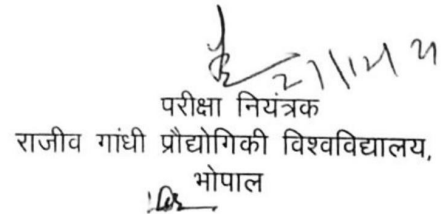 27/12/21
परीक्षा नियंत्रक
राजीव गांधी प्रौद्योगिकी विश्वविद्यालय,
भोपाल